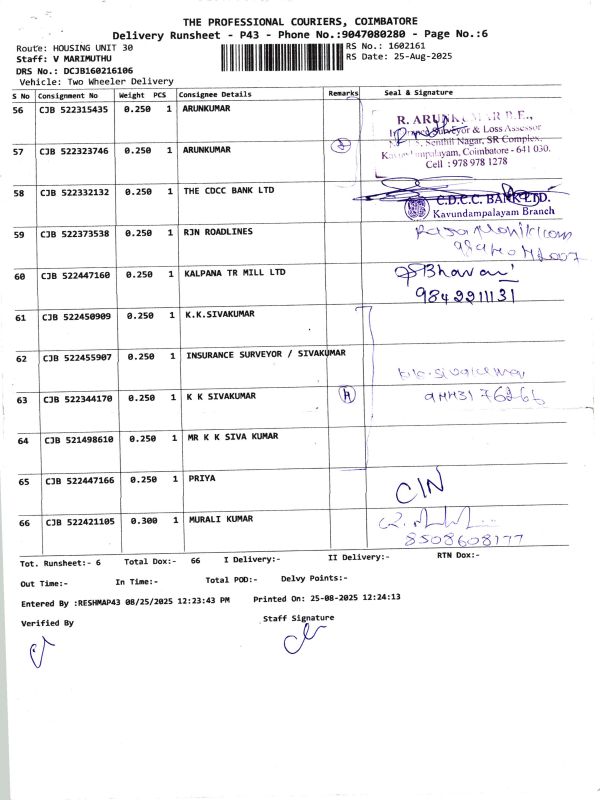 THE PROFESSIONAL COURIERS, COIMBATORE
Delivery Runsheet - P43 - Phone No.:9047080280 - Page No.:6
Route: HOUSING UNIT 30 RS No.: 1602161
Staff: V MARIMUTHU RS Date: 25-Aug-2025
DRS No.: DCJB160216106
Vehicle: Two Wheeler Delivery
S No Consignment No Weight PCS Consignee Details Remarks Seal & Signature
56 CJB 522315435 0.250 1 ARUNKUMAR
R. ARUNKUMAR B.E.,
Surveyor & Loss Assessor
57 CJB 522323746 0.250 1 ARUNKUMAR 2
Senthil Nagar, SR Complex,
Kavundampalayam, Coimbatore - 641 030.
Cell : 978 978 1278
58 CJB 522332132 0.250 1 THE CDCC BANK LTD
C.D.C.C. BANK LTD.
Kavundampalayam Branch
59 CJB 522373538 0.250 1 RJN ROADLINES
60 CJB 522447160 0.250 1 KALPANA TR MILL LTD Bhavani
9842211131
61 CJB 522450909 0.250 1 K.K.SIVAKUMAR
62 CJB 522455907 0.250 1 INSURANCE SURVEYOR / SIVAKUMAR
k.k.sivakumar
63 CJB 522344170 0.250 1 K K SIVAKUMAR 4
64 CJB 521498610 0.250 1 MR K K SIVA KUMAR
65 CJB 522447166 0.250 1 PRIYA C/N
66 CJB 522421105 0.300 1 MURALI KUMAR
8508608177
Tot. Runsheet:- 6 Total Dox:- 66 I Delivery:- II Delivery:- RTN Dox:-
Out Time:- In Time:- Total POD:- Delvy Points:-
Entered By :RESHMAP43 08/25/2025 12:23:43 PM Printed On: 25-08-2025 12:24:13
Verified By Staff Signature